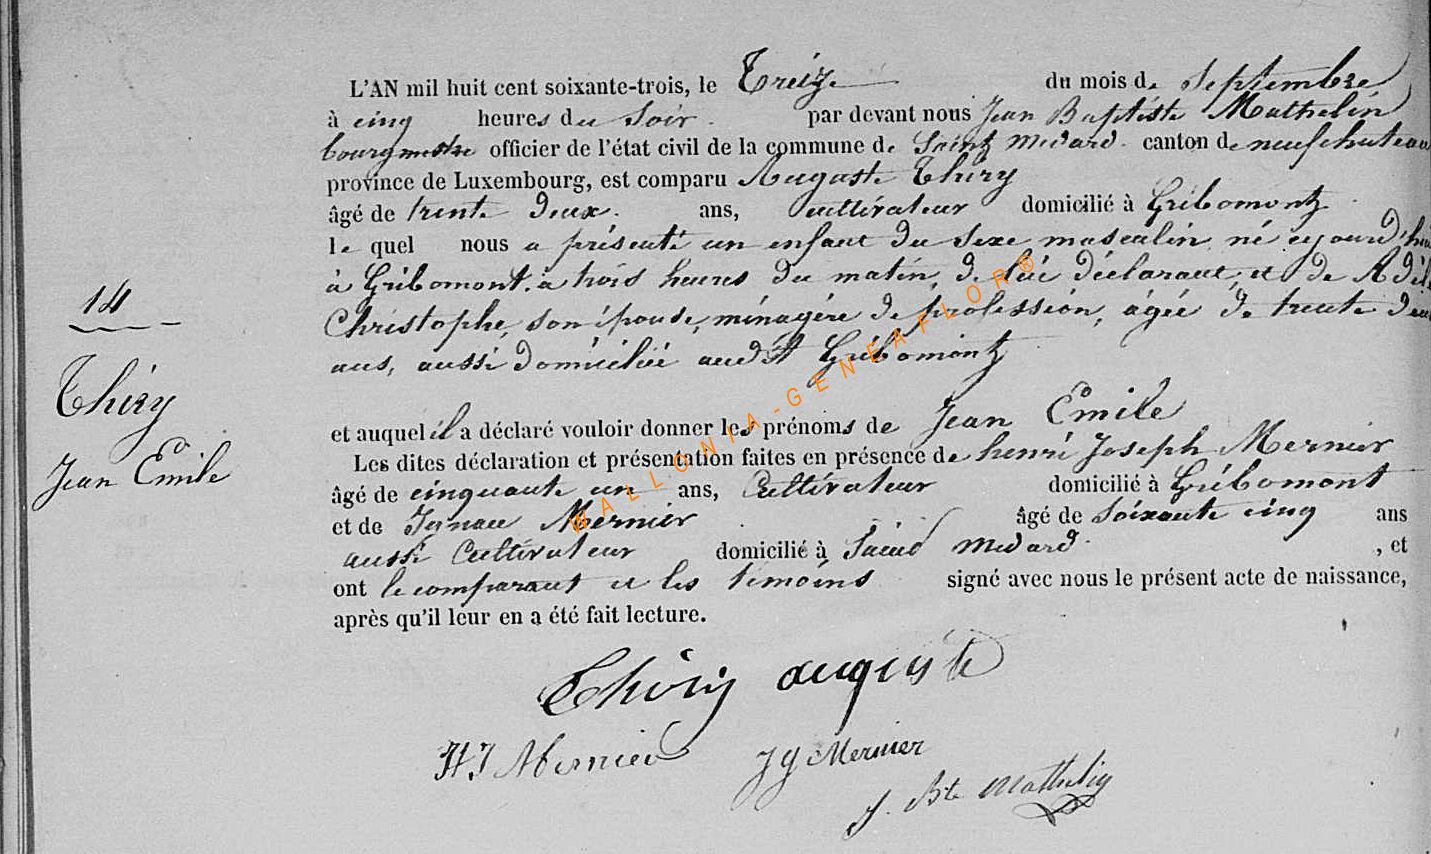 L'AN mil huit cent soixante-trois, le Treize du mois de Septembre
à cinq heures du Soir. par devant nous Jean Baptiste Mathelin
bourgmestre officier de l'état civil de la commune de Saint Médard. canton de neufchateau
province de Luxembourg, est comparu Auguste Thiry
âgé de trente deux. ans, cultivateur domicilié à Gribomont
le quel nous a présenté un enfant du sexe masculin, né cejourd'hui
à Gribomont. à trois heures du matin, de lui déclarant, et de Adèle
Christophe, son épouse, ménagère de profession, âgée de trente deux
ans, aussi domiciliée audit Gribomont
14
Thiry
Jean Emile
et auquel il a déclaré vouloir donner les prénoms de Jean Emile
Les dites déclaration et présentation faites en présence de henri Joseph Mernier
âgé de cinquante un ans, Cultivateur domicilié à Gribomont
et de Ignace Mernier âgé de Soixante cinq ans
aussi Cultivateur domicilié à Saint Médard , et
ont le comparant et les témoins signé avec nous le présent acte de naissance,
après qu'il leur en a été fait lecture.
Thiriy auguste
HJ Mernier Jg Mernier
J. Bte Mathelin
WALLONIA-GENEAFLOR®